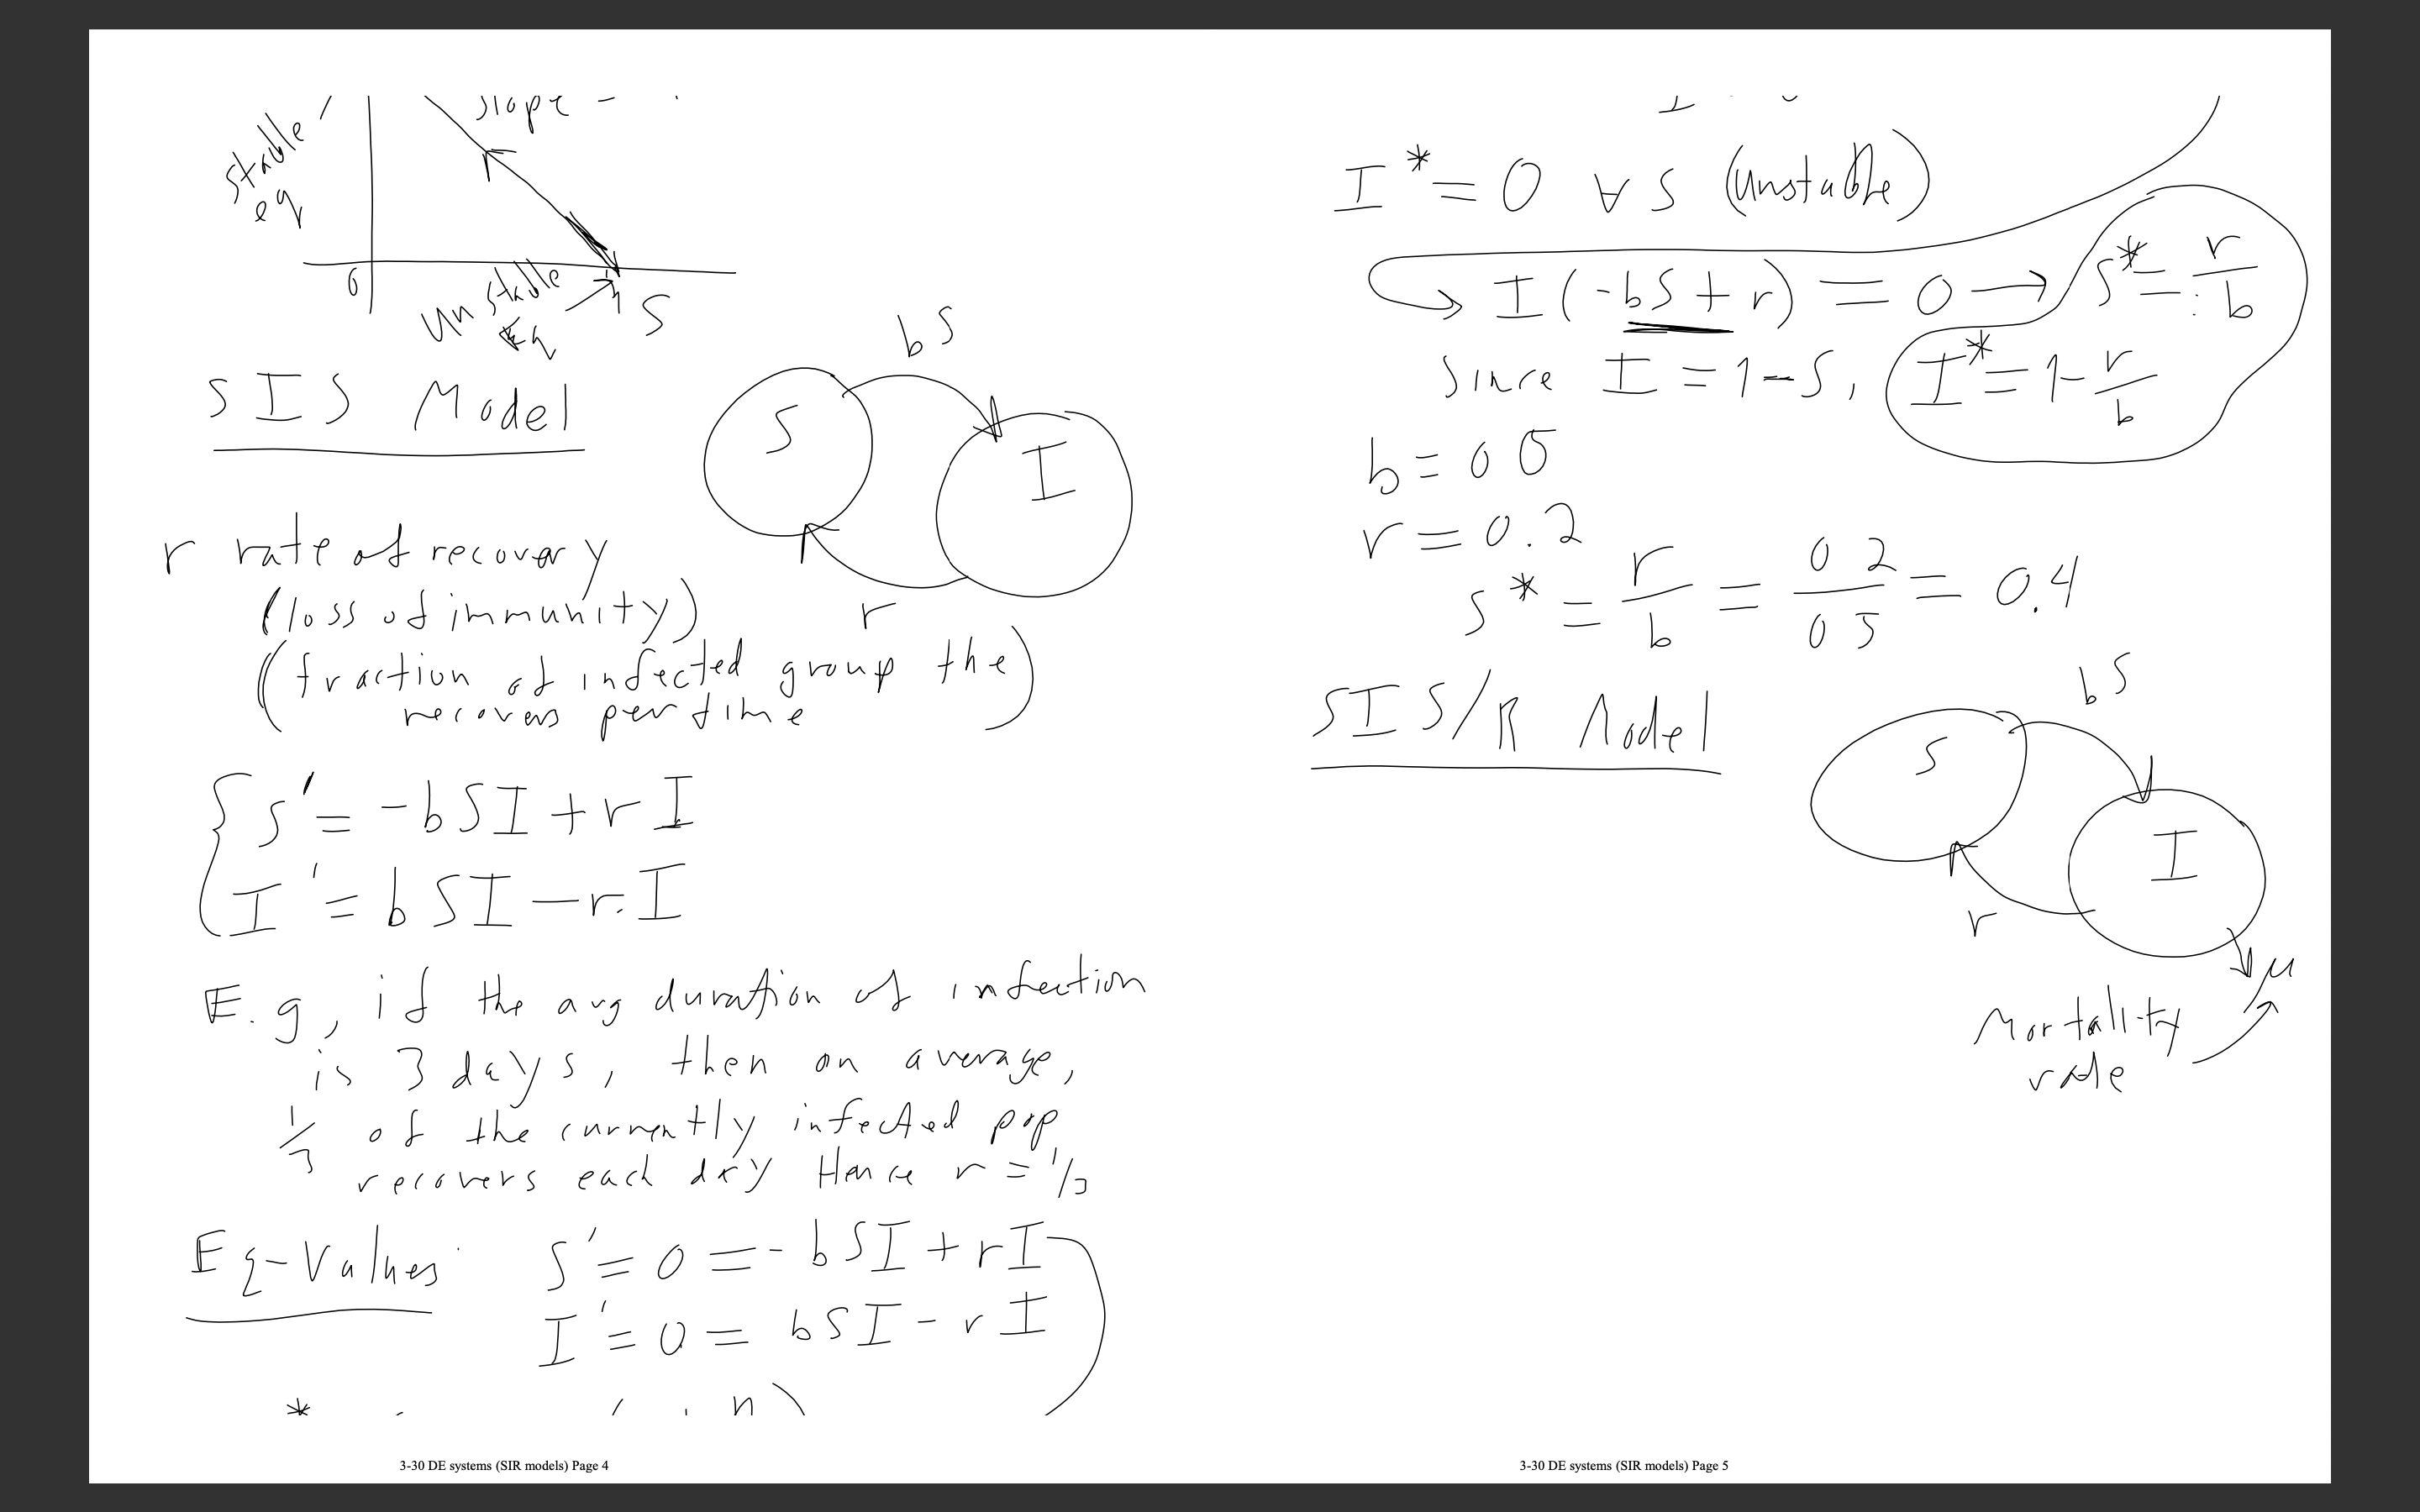 slope -
stable
eq
0
unstable
Eq
1
S
SIS Model
bS
S
I
r
r rate of recovery
(loss of immunity)
(fraction of infected group the
recovers per time)
S' = -bSI + rI
I' = bSI - rI
E.g, if the avg duration of infection
is 3 days, then on average,
1/3 of the currently infected pop
recovers each day Hence r = 1/3
Eq-Values
S' = 0 = -bSI + rI
I' = 0 = bSI - rI
*
3-30 DE systems (SIR models) Page 4
I* = 0 ∀ S (unstable)
I(-bS + r) = 0 → S* = r/b
Since I = 1-S, I* = 1 - r/b
b = 0 5
r = 0.2
S* = r/b = 0 2/0 5 = 0.4
SIS/R Model
bS
S
I
r
μ
Mortality
rate
3-30 DE systems (SIR models) Page 5